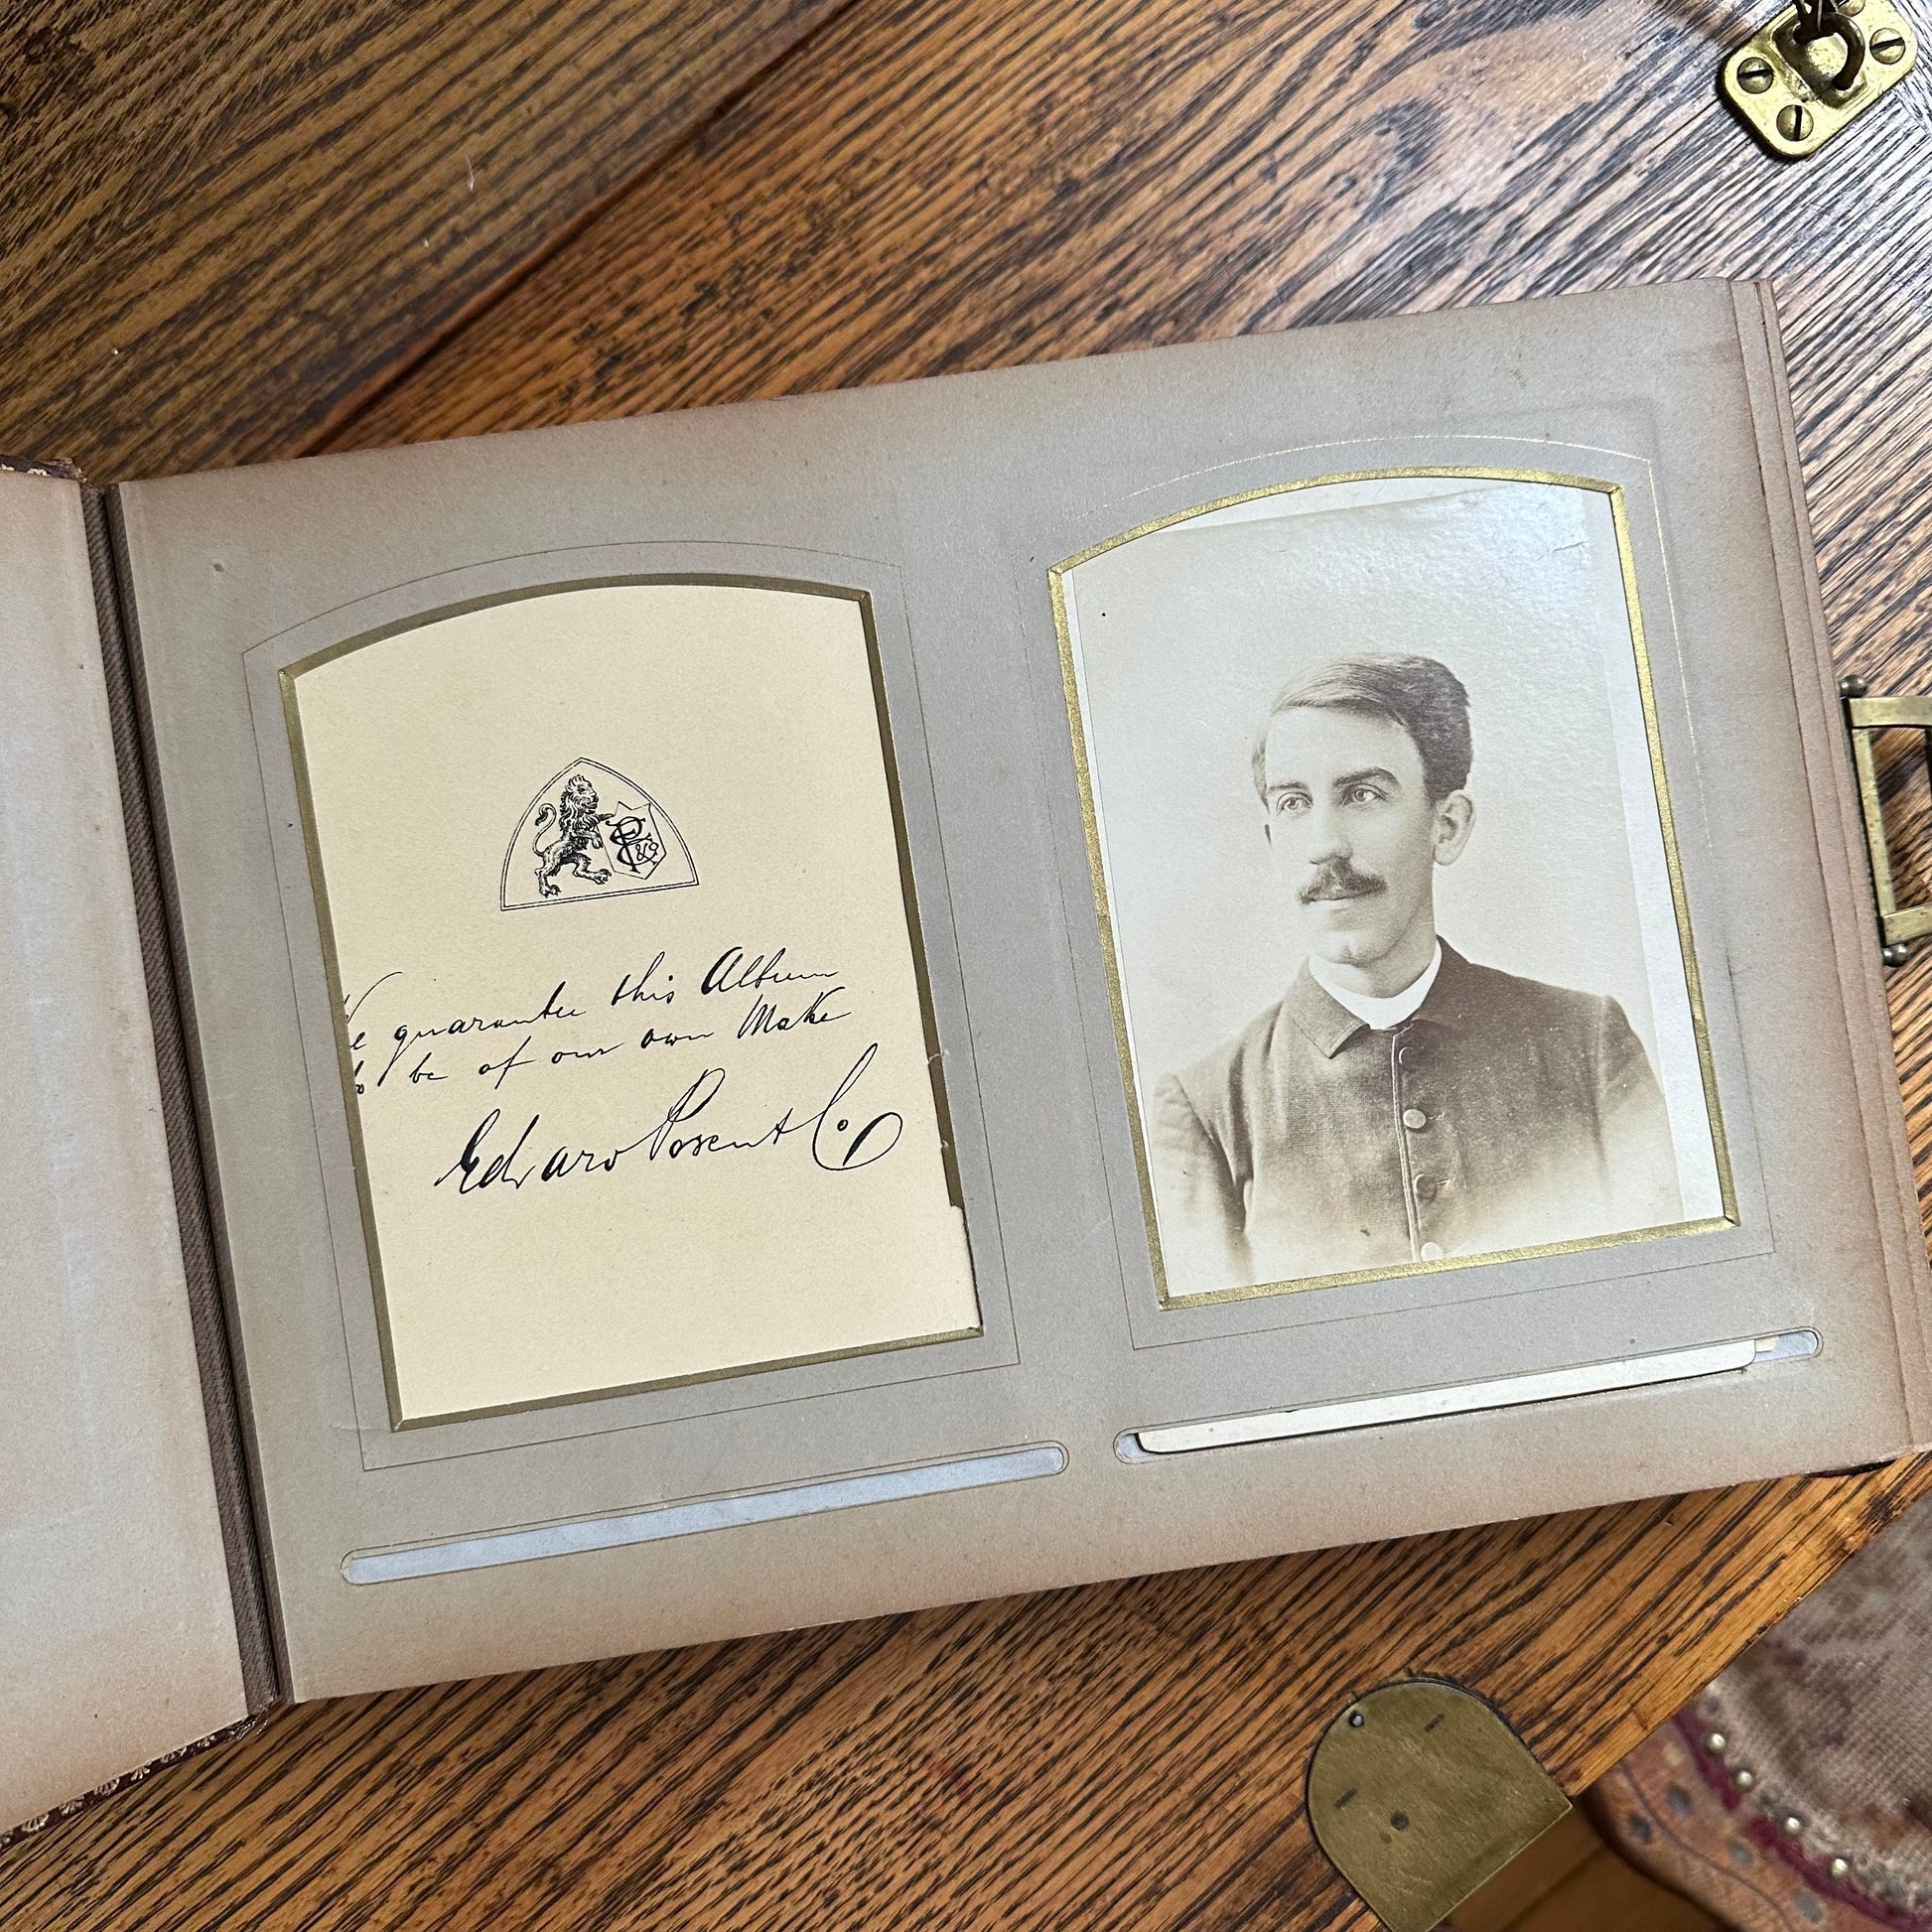 We guarantee this Album
to be of our own Make
Edward Posent Co